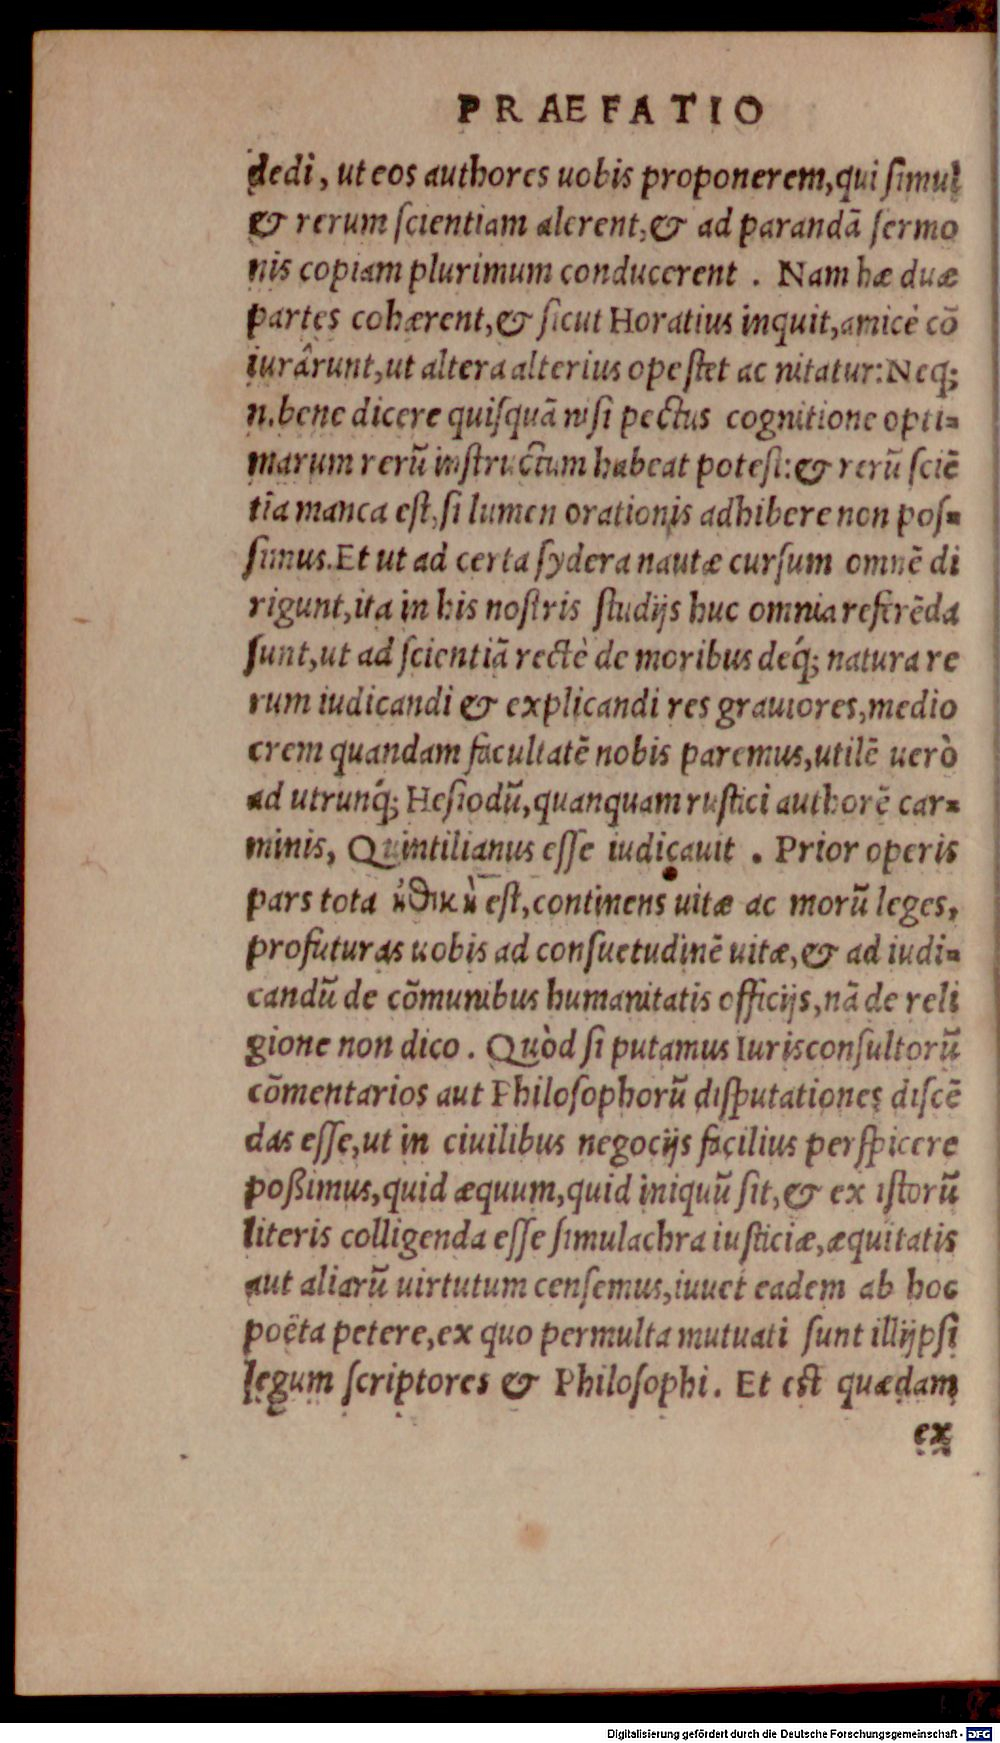 PRAEFATIO
dedi, ut eos authores uobis proponerem, qui ſimul
& rerum ſcientiam alerent, & ad parandã ſermo
nis copiam plurimum conducerent . Nam hæ duæ
partes cohærent, & ſicut Horatius inquit, amicè cõ
iurârunt, ut altera alterius ope ſtet ac nitatur: Neq;
n. bene dicere quiſquã niſi pectus cognitione opti-
marum rerũ inſtructum habeat poteſt: & rerũ ſciẽ
tia manca eſt, ſi lumen orationis adhibere non poſ-
ſimus. Et ut ad certa ſydera nautæ curſum omnẽ di
rigunt, ita in his noſtris ſtudijs huc omnia referẽda
ſunt, ut ad ſcientiã rectè de moribus deq́; natura re
rum iudicandi & explicandi res grauiores, medio
crem quandam facultatẽ nobis paremus, utilẽ uerò
ad utrunq́; Heſiodũ, quanquam ruſtici authorẽ car-
minis, Quintilianus eſſe iudicauit . Prior operis
pars tota ἠθικὴ eſt, continens uitæ ac morũ leges,
profuturas uobis ad conſuetudinẽ uitæ, & ad iudi-
candũ de cõmunibus humanitatis officijs, nã de reli
gione non dico . Quòd ſi putamus Iurisconſultorũ
cõmentarios aut Philoſophorũ diſputationes diſcẽ
das eſſe, ut in ciuilibus negocijs facilius perſpicere
poßimus, quid æquum, quid iniquũ ſit, & ex iſtorũ
literis colligenda eſſe ſimulachra iuſticiæ, æquitatis
aut aliarũ uirtutum cenſemus, iuuet eadem ab hoc
poëta petere, ex quo permulta mutuati ſunt illi ipſi
legum ſcriptores & Philoſophi. Et eſt quædam
ex
Digitalisierung gefördert durch die Deutsche Forschungsgemeinschaft - DFG